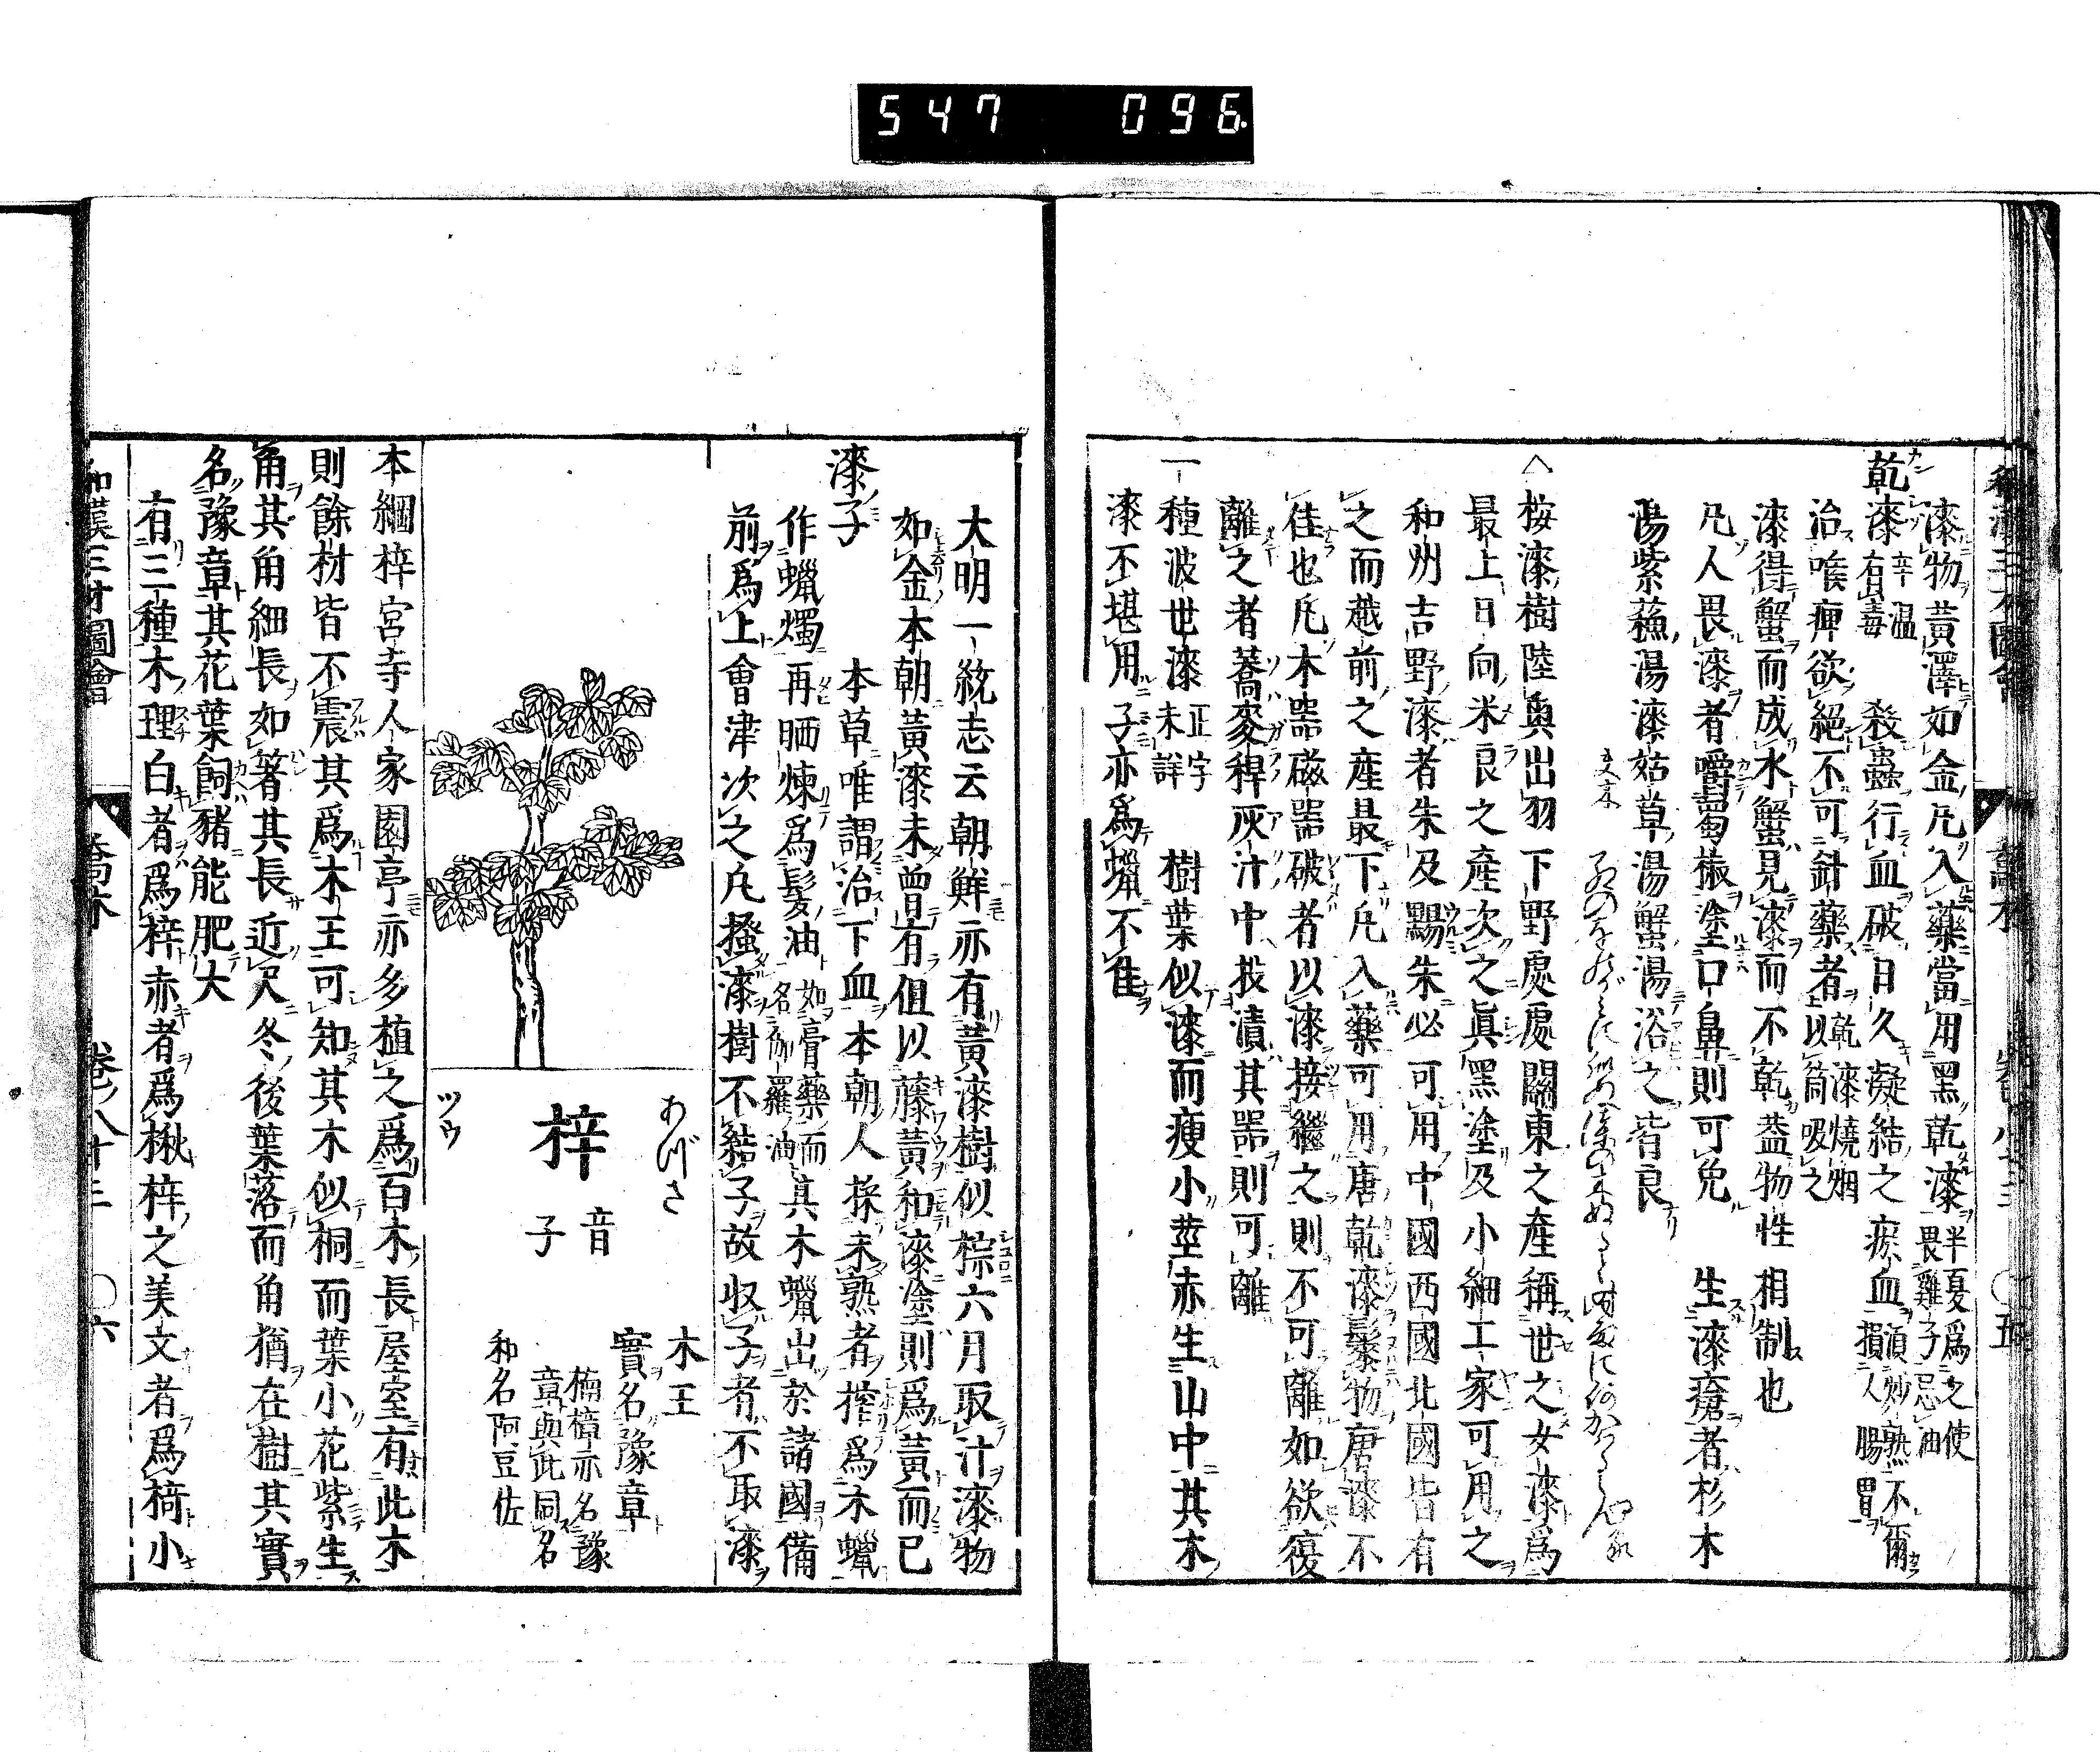 547 096
漆物黃澤如金凡入藥當用黑乾漆 半夏爲之使 畏雞子忌油
乾漆 辛溫 有毒 殺蟲行血破日久凝結之瘀血 須炒熟不爾 損人腸胃
治喉痺欲絕不可針藥者 乾漆燒烟 以筒吸之
漆得蟹而成水蟹見漆而不乾蓋物性相制也
凡人畏漆者嚼蜀椒塗口鼻則可免 生漆瘡者杉木
湯紫蘇湯漆姑草湯蟹湯浴之皆良
△按漆樹陸奥出羽下野處處關東之產稱世之女漆爲
最上日向米良之產次之眞黑塗及小細工家可用之
和州吉野漆者朱及黝朱必可用中國西國北國皆有
之而越前之產最下凡入藥可用唐乾漆髹物唐漆不
佳也凡木噐磁噐破者以漆接繼之則不可離如欲復
離之者蕎麥稈灰汁中投漬其噐則可離
一種波世漆 正字未詳 樹葉似漆而瘦小莖赤生山中其木
漆不堪用子亦爲蠟不佳
大明一統志云朝鮮亦有黃漆樹似椶六月取汁漆物
如金本朝黃漆未曾有但以藤黃和漆塗則爲黃而已
漆子 本草唯謂治下血本朝人採未熟者搾爲木蠟
作蠟燭再晒煉爲髮油 如膏藥而 名伽羅油 其木蠟出於諸國備
前爲上會津次之凡搔漆樹不結子故収子者不取漆
あづさ
梓 音子
ツウ
木王
實名豫章
楠樟亦名豫
章與此同名
和名阿豆佐
本綱梓宮寺人家園亭亦多植之爲百木長屋室有此木
則餘材皆不震其爲木王可知其木似桐而葉小花紫生
角其角細長如箸其長近尺冬後葉落而角猶在樹其實
名豫章其花葉飼豬能肥大
有三種木理白者爲梓赤者爲楸梓之美文者爲椅小
和漢三才圖會 喬木 卷ノ八十三 〇六